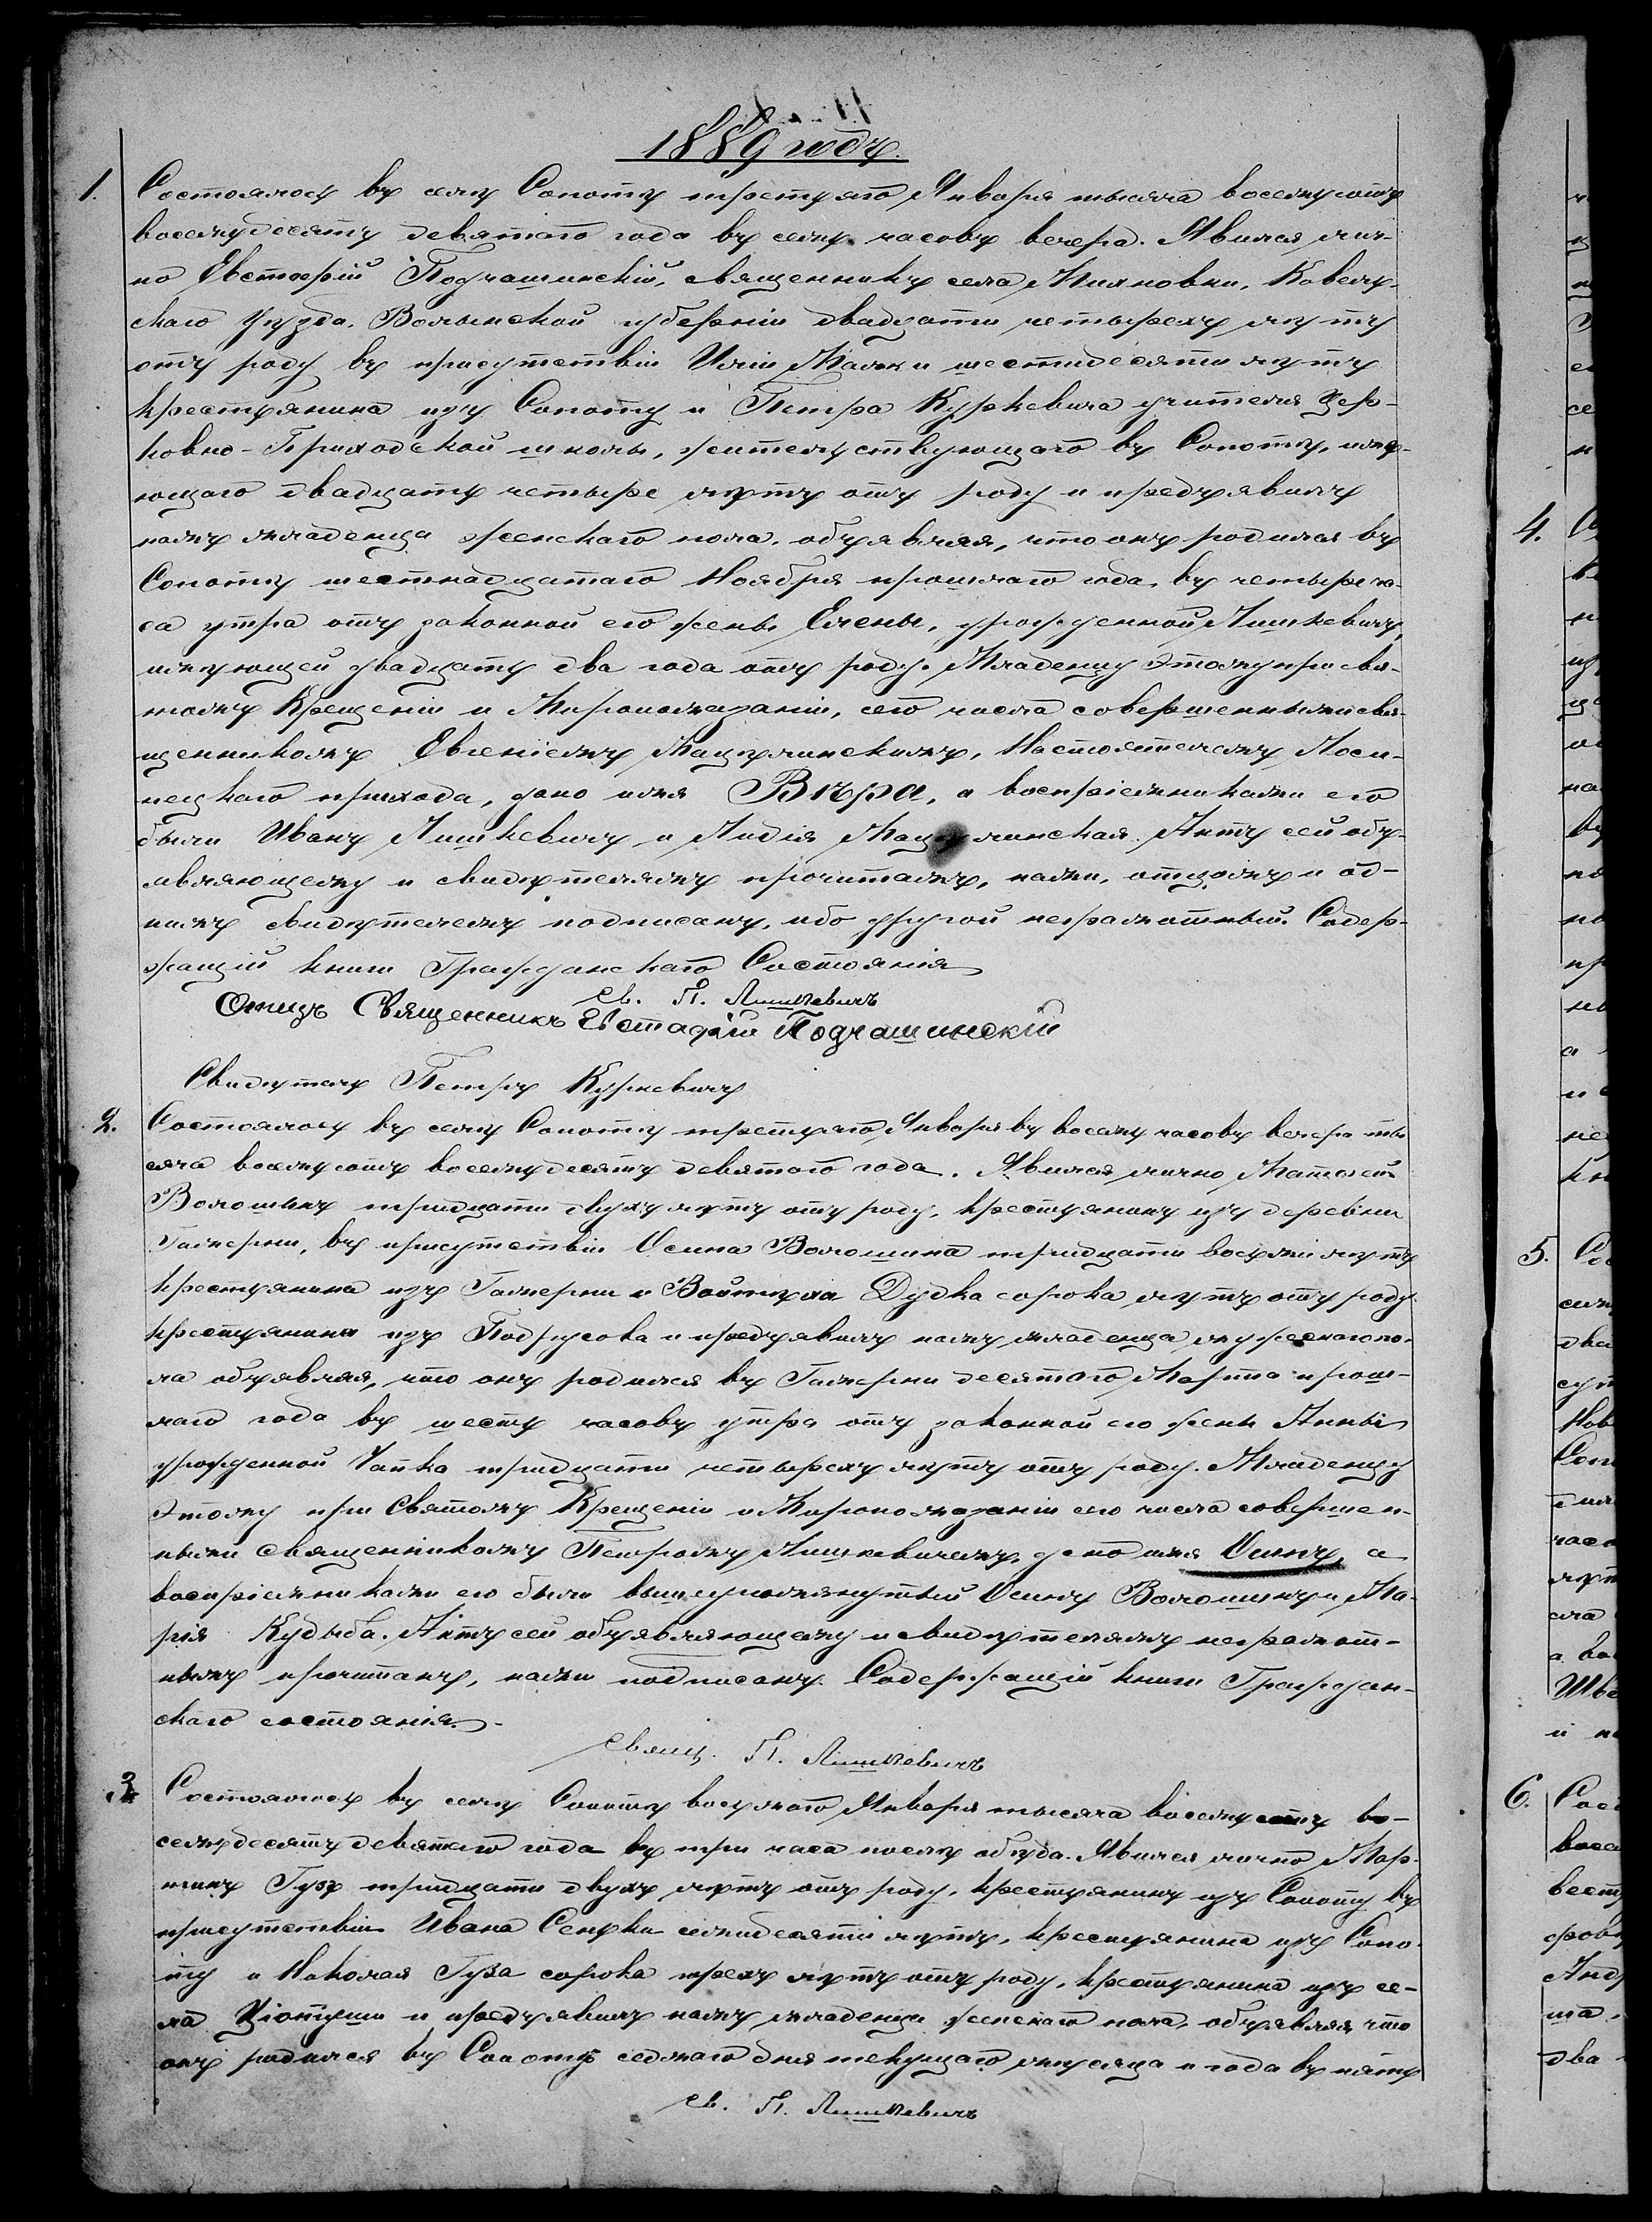 1889 годъ.
1. Состоялось въ селѣ Сопотѣ третьяго Января тысяча восемьсотъ
восемьдесятъ девятаго года въ семь часовъ вечера. Явился лич-
но Евстафій Подчашинскій, священникъ села Миляновки, Ковель-
скаго уѣзда, Волынской губерніи двадцати четырехъ лѣтъ
отъ роду въ присутствіи Иліи шестидесяти лѣтъ
крестьянина изъ Сопота и Петра Куркевича учителя Цер-
ковно-Приходской школы, жительствующаго въ Сопотѣ, имѣ-
ющаго двадцать четыре лѣтъ отъ роду и предъявилъ
намъ младенца женскаго пола, объявляя, что онъ родился въ
Сопотѣ шестнадцатаго Ноября прошлаго года, въ четыре ча-
са утра отъ законной его жены Елены, урожденной Лишкевичъ,
имѣющей двадцать два года отъ роду. Младенцу этому при свя-
томъ Крещеніи и Миропомазаніи, сего числа совершенными свя-
щенникомъ Евгеніемъ, Настоятелемъ Лоси-
нецкаго прихода, дано имя Вѣра, а воспріемниками его
были Иванъ Лишкевичъ и Лидія. Актъ сей объ-
являющему и свидѣтелямъ прочитанъ, нами, отцомъ и од-
нимъ свидѣтелемъ подписанъ, ибо другой неграмотный. Содер-
жащій книги Гражданскаго Состоянія
Св. П. Лишкевичъ
Отецъ Священникъ Евстафій Подчашинскій
Свидѣтель Петръ Куркевичъ
2. Состоялось въ селѣ Сопотѣ третьяго Января въ восемь часовъ вечера ты-
сяча восемьсотъ восемьдесятъ девятаго года. Явился лично Матѳей
Волошинъ тридцати двухъ лѣтъ отъ роду, крестьянинъ изъ деревни
Гамерни, въ присутствіи Осипа Волошина тридцати восьми лѣтъ
крестьянина изъ Гамерни и Войтѣха Дудка сорока лѣтъ отъ роду
крестьянина изъ Подрусова и предъявилъ намъ младенца мужескаго по-
ла объявляя, что онъ родился въ Гамерни десятаго Марта прош-
лаго года въ шесть часовъ утра отъ законной его жены Анны
урожденной Чапка тридцати четырехъ лѣтъ отъ роду. Младенцу
этому при Святомъ Крещеніи и Миропомазаніи сего числа совершен-
ными Священникомъ Петромъ Лишкевичемъ, дано имя Осипъ, а
воспріемниками его были вышеупомянутый Осипъ Волошинъ и Ма-
рія Кудыба. Актъ сей объявляющему и свидѣтелямъ неграмот-
нымъ прочитанъ, нами подписанъ. Содержащій книги Граждан-
скаго состоянія.
Свящ. П. Лишкевичъ
3. Состоялось въ селѣ Сопотѣ восьмаго Января тысяча восемьсотъ во-
семьдесятъ девятаго года въ три часа послѣ обѣда. Явился лично Мар-
тинъ Гузъ тридцати двухъ лѣтъ отъ роду, крестьянинъ изъ Сопотъ въ
присутствіи Ивана семидесяти лѣтъ, крестьянина изъ Сопо-
тъ и Николая Гуза сорока трехъ лѣтъ отъ роду, крестьянина изъ се-
ла Ціотуши и предъявилъ намъ младенца женскаго пола, объявляя что
онъ родился въ Сопотѣ седьмаго дня текущаго мѣсяца и года въ пять
Св. П. Лишкевичъ
4.
5.
6.